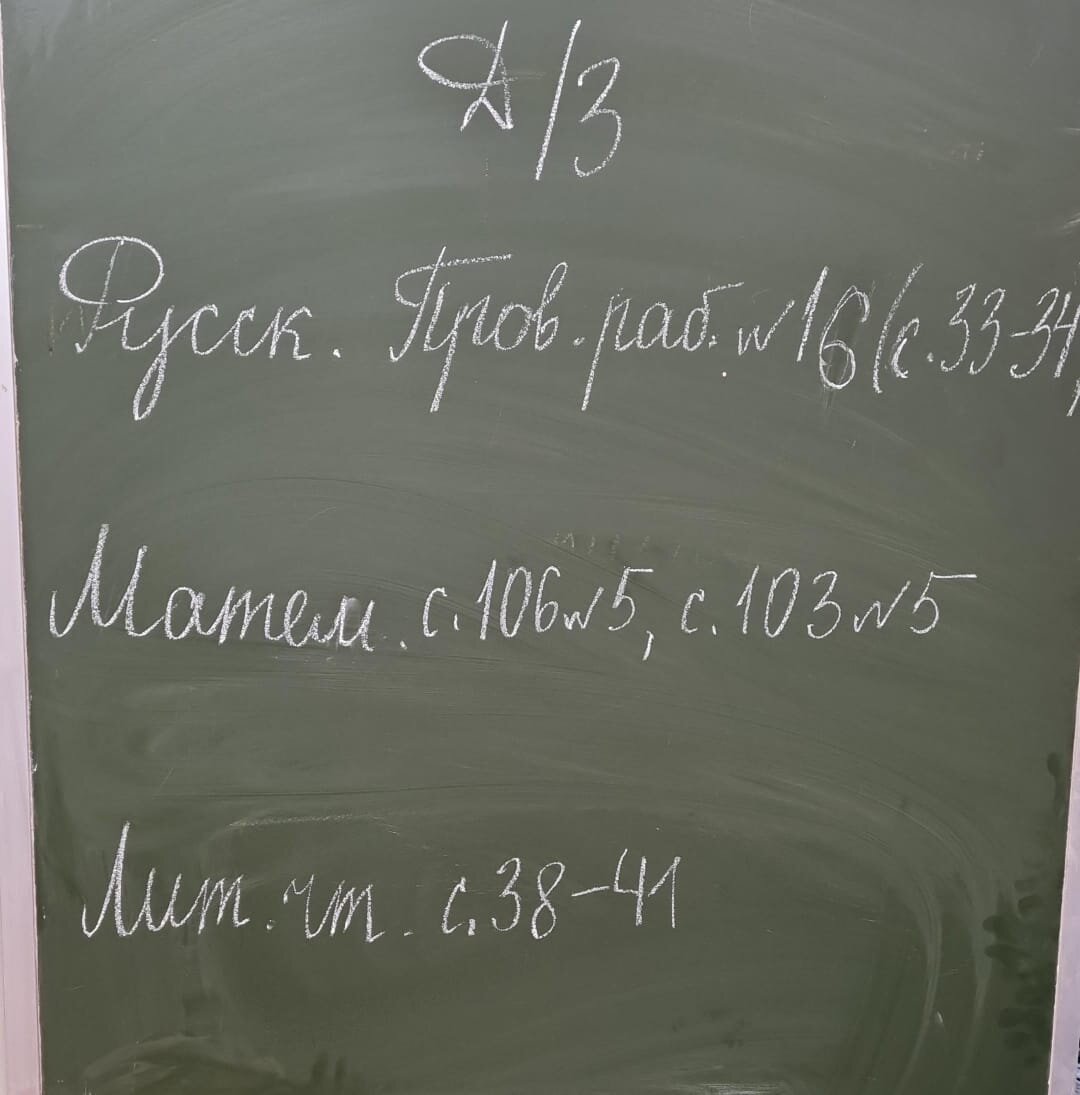 Д/З
Русск. Пров. раб. №16 (с. 33-34)
Матем. с. 106 №5, с. 103 №5
Лит. чт. с. 38-41